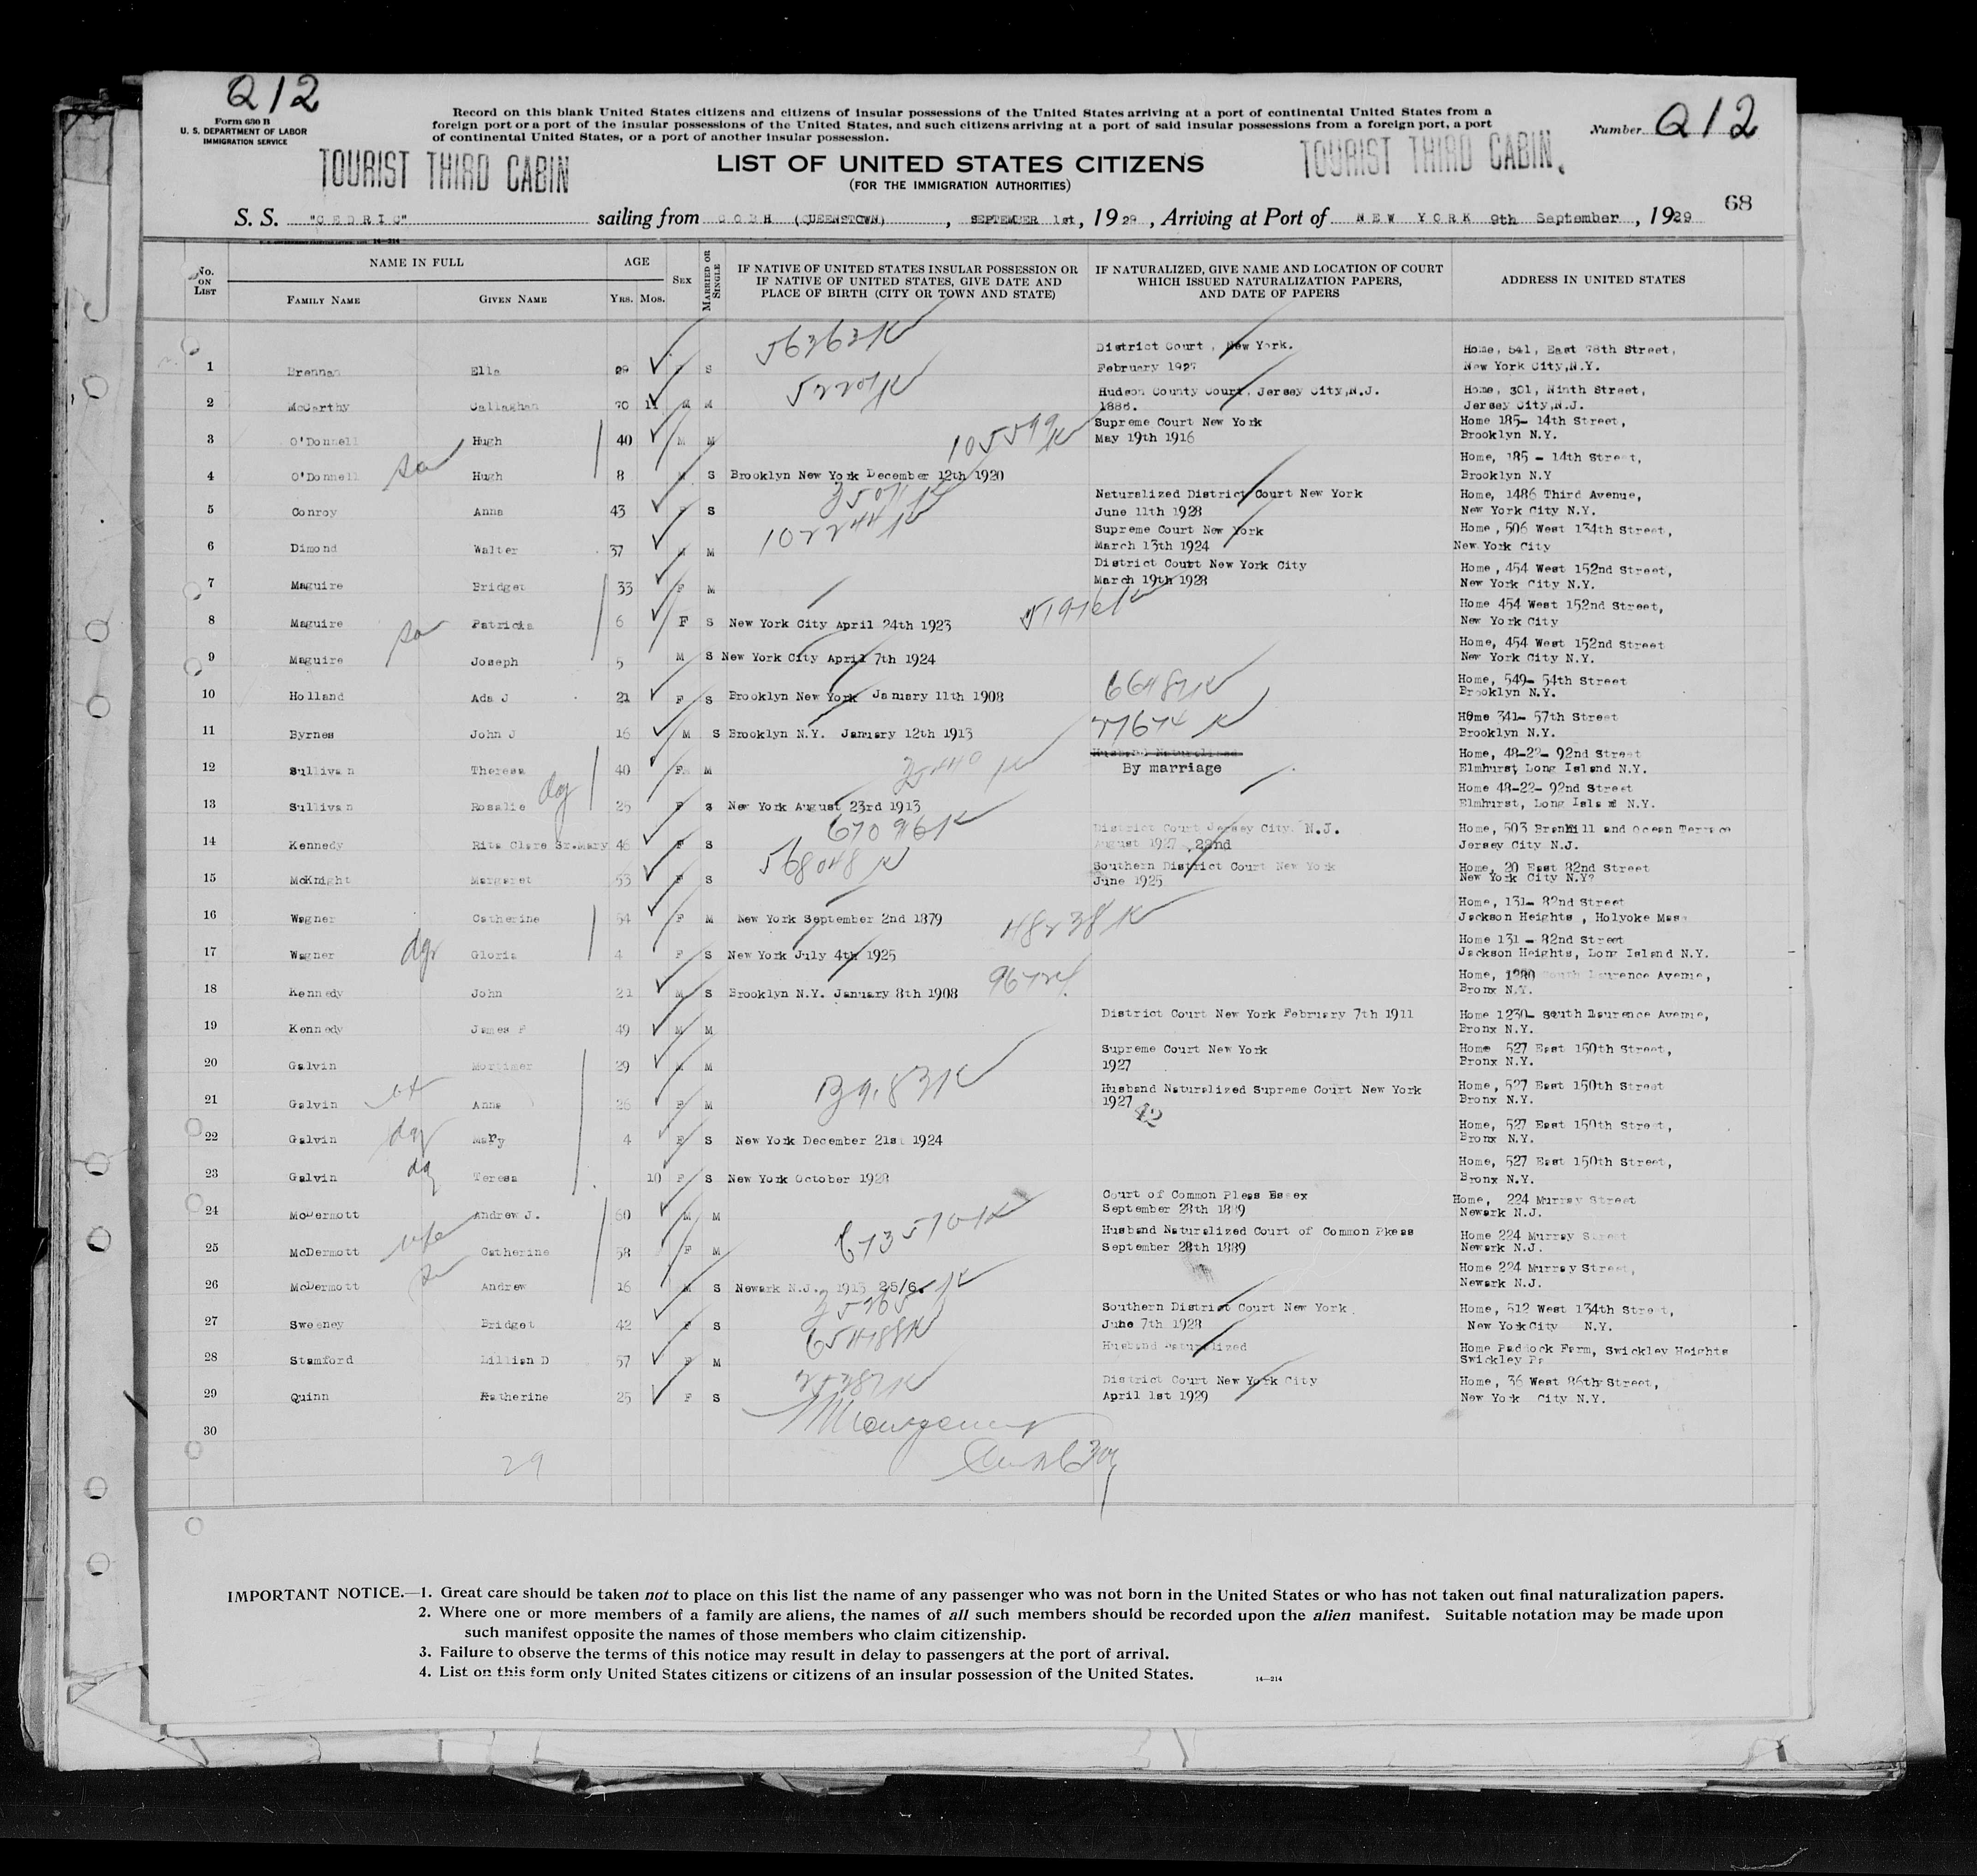 Q12
Form 630 B
U. S. DEPARTMENT OF LABOR
IMMIGRATION SERVICE
Record on this blank United States citizens and citizens of insular possessions of the United States arriving at a port of continental United States from a
foreign port or a port of the insular possessions of the United States, and such citizens arriving at a port of said insular possessions from a foreign port, a port
of continental United States, or a port of another insular possession.
Number Q12
TOURIST THIRD CABIN
LIST OF UNITED STATES CITIZENS
TOURIST THIRD CABIN.
(FOR THE IMMIGRATION AUTHORITIES)
68
S. S. "CEDRIC" sailing from COBH (QUEENSTOWN), SEPTEMBER 1st, 1929, Arriving at Port of NEW YORK 9th September, 1929
No. ON LIST
NAME IN FULL
FAMILY NAME
GIVEN NAME
AGE
YRS. MOS.
SEX
MARRIED OR SINGLE
IF NATIVE OF UNITED STATES INSULAR POSSESSION OR
IF NATIVE OF UNITED STATES, GIVE DATE AND
PLACE OF BIRTH (CITY OR TOWN AND STATE)
IF NATURALIZED, GIVE NAME AND LOCATION OF COURT
WHICH ISSUED NATURALIZATION PAPERS,
AND DATE OF PAPERS
ADDRESS IN UNITED STATES
District Court, New York. Home, 541, East 78th Street,
1 Brennan Ella 29 S February 1927 New York City, N.Y.
Hudson County Court, Jersey City, N.J. Home, 301, Ninth Street,
2 McCarthy Callaghan 70 11 M M 1888. Jersey City, N.J.
Supreme Court New York Home 185- 14th Street,
3 O'Donnell Hugh 40 M M May 19th 1916 Brooklyn N.Y.
Home, 185 - 14th Street,
4 O'Donnell son Hugh 8 M S Brooklyn New York December 12th 1920 Brooklyn N.Y
Naturalized District Court New York Home, 1486 Third Avenue,
5 Conroy Anna 43 F S June 11th 1928 New York City N.Y.
102244 K Supreme Court New York Home, 506 West 134th Street,
6 Dimond Walter 37 M M March 13th 1924 New York City
District Court New York City Home, 454 West 152nd Street,
7 Maguire Bridget 33 F M March 19th 1928 New York City N.Y.
Home 454 West 152nd Street,
8 Maguire Patricia 6 F S New York City April 24th 1923 New York City
Home, 454 West 152nd Street
9 Maguire Joseph 5 M S New York City April 7th 1924 New York City N.Y.
Home, 549- 54th Street
10 Holland Ada J 21 F S Brooklyn New York January 11th 1908 Brooklyn N.Y.
Home 341- 57th Street
11 Byrnes John J 16 M S Brooklyn N.Y. January 12th 1913 Brooklyn N.Y.
Husband Naturalized Home, 48-22- 92nd Street
12 Sullivan Theresa 40 F M By marriage Elmhurst Long Island N.Y.
Home 48-22- 92nd Street
13 Sullivan Rosalie S New York August 23rd 1913 Elmhurst, Long Island N.Y.
District Court Jersey City N.J. Home, 503 and Ocean Terrace
14 Kennedy Rita Clare Sr.Mary 46 F S August 1927 22nd Jersey City N.J.
Southern District Court New York Home, 20 East 82nd Street
15 McKnight Margaret 53 F S June 1925 New York City N.Y?
Home, 131- 82nd Street
16 Wagner Catherine F M New York September 2nd 1879 Jackson Heights, Holyoke Mass
Home 131 - 82nd Street
17 Wagner Gloria 4 F S New York July 4th 1925 Jackson Heights, Long Island N.Y.
Avenue,
18 Kennedy John 21 M S Brooklyn N.Y. January 8th 1908 Bronx N.Y.
District Court New York February 7th 1911 Home 1230- South Laurence Avenue,
19 Kennedy James F 49 M M Bronx N.Y.
Supreme Court New York Home 527 East 150th Street,
20 Galvin Mortimer 29 M M 1927 Bronx N.Y.
Husband Naturalized Supreme Court New York Home, 527 East 150th Street
21 Galvin Anna 26 F M 1927 Bronx N.Y.
Home, 527 East 150th Street,
22 Galvin Mary 4 F S New York December 21st 1924 Bronx N.Y.
Home, 527 East 150th Street,
23 Galvin Teresa 10 F S New York October 1928 Bronx N.Y.
Court of Common Pleas Essex Home, 224 Murray Street
24 McDermott Andrew J. 60 M M September 28th 1889 Newark N.J.
Husband Naturalized Court of Common Pkeas Home 224 Murray Street
25 McDermott wife Catherine 58 F M September 28th 1889 Newark N.J.
Home 224 Murray Street,
26 McDermott Andrew 16 M S Newark N.J. 1913 25/6. Newark N.J.
Southern District Court New York. Home, 512 West 134th Street,
27 Sweeney Bridget 42 F S June 7th 1928 New York City N.Y.
Husband Naturalized Home Paddock Farm, Swickley Heights
28 Stamford Lillian D 57 F M Swickley Pa
District Court New York City Home, 36 West 86th Street,
29 Quinn Katherine 25 F S April 1st 1929 New York City N.Y.
30
29
IMPORTANT NOTICE.—1. Great care should be taken not to place on this list the name of any passenger who was not born in the United States or who has not taken out final naturalization papers.
2. Where one or more members of a family are aliens, the names of all such members should be recorded upon the alien manifest. Suitable notation may be made upon
such manifest opposite the names of those members who claim citizenship.
3. Failure to observe the terms of this notice may result in delay to passengers at the port of arrival.
4. List on this form only United States citizens or citizens of an insular possession of the United States.
14—214